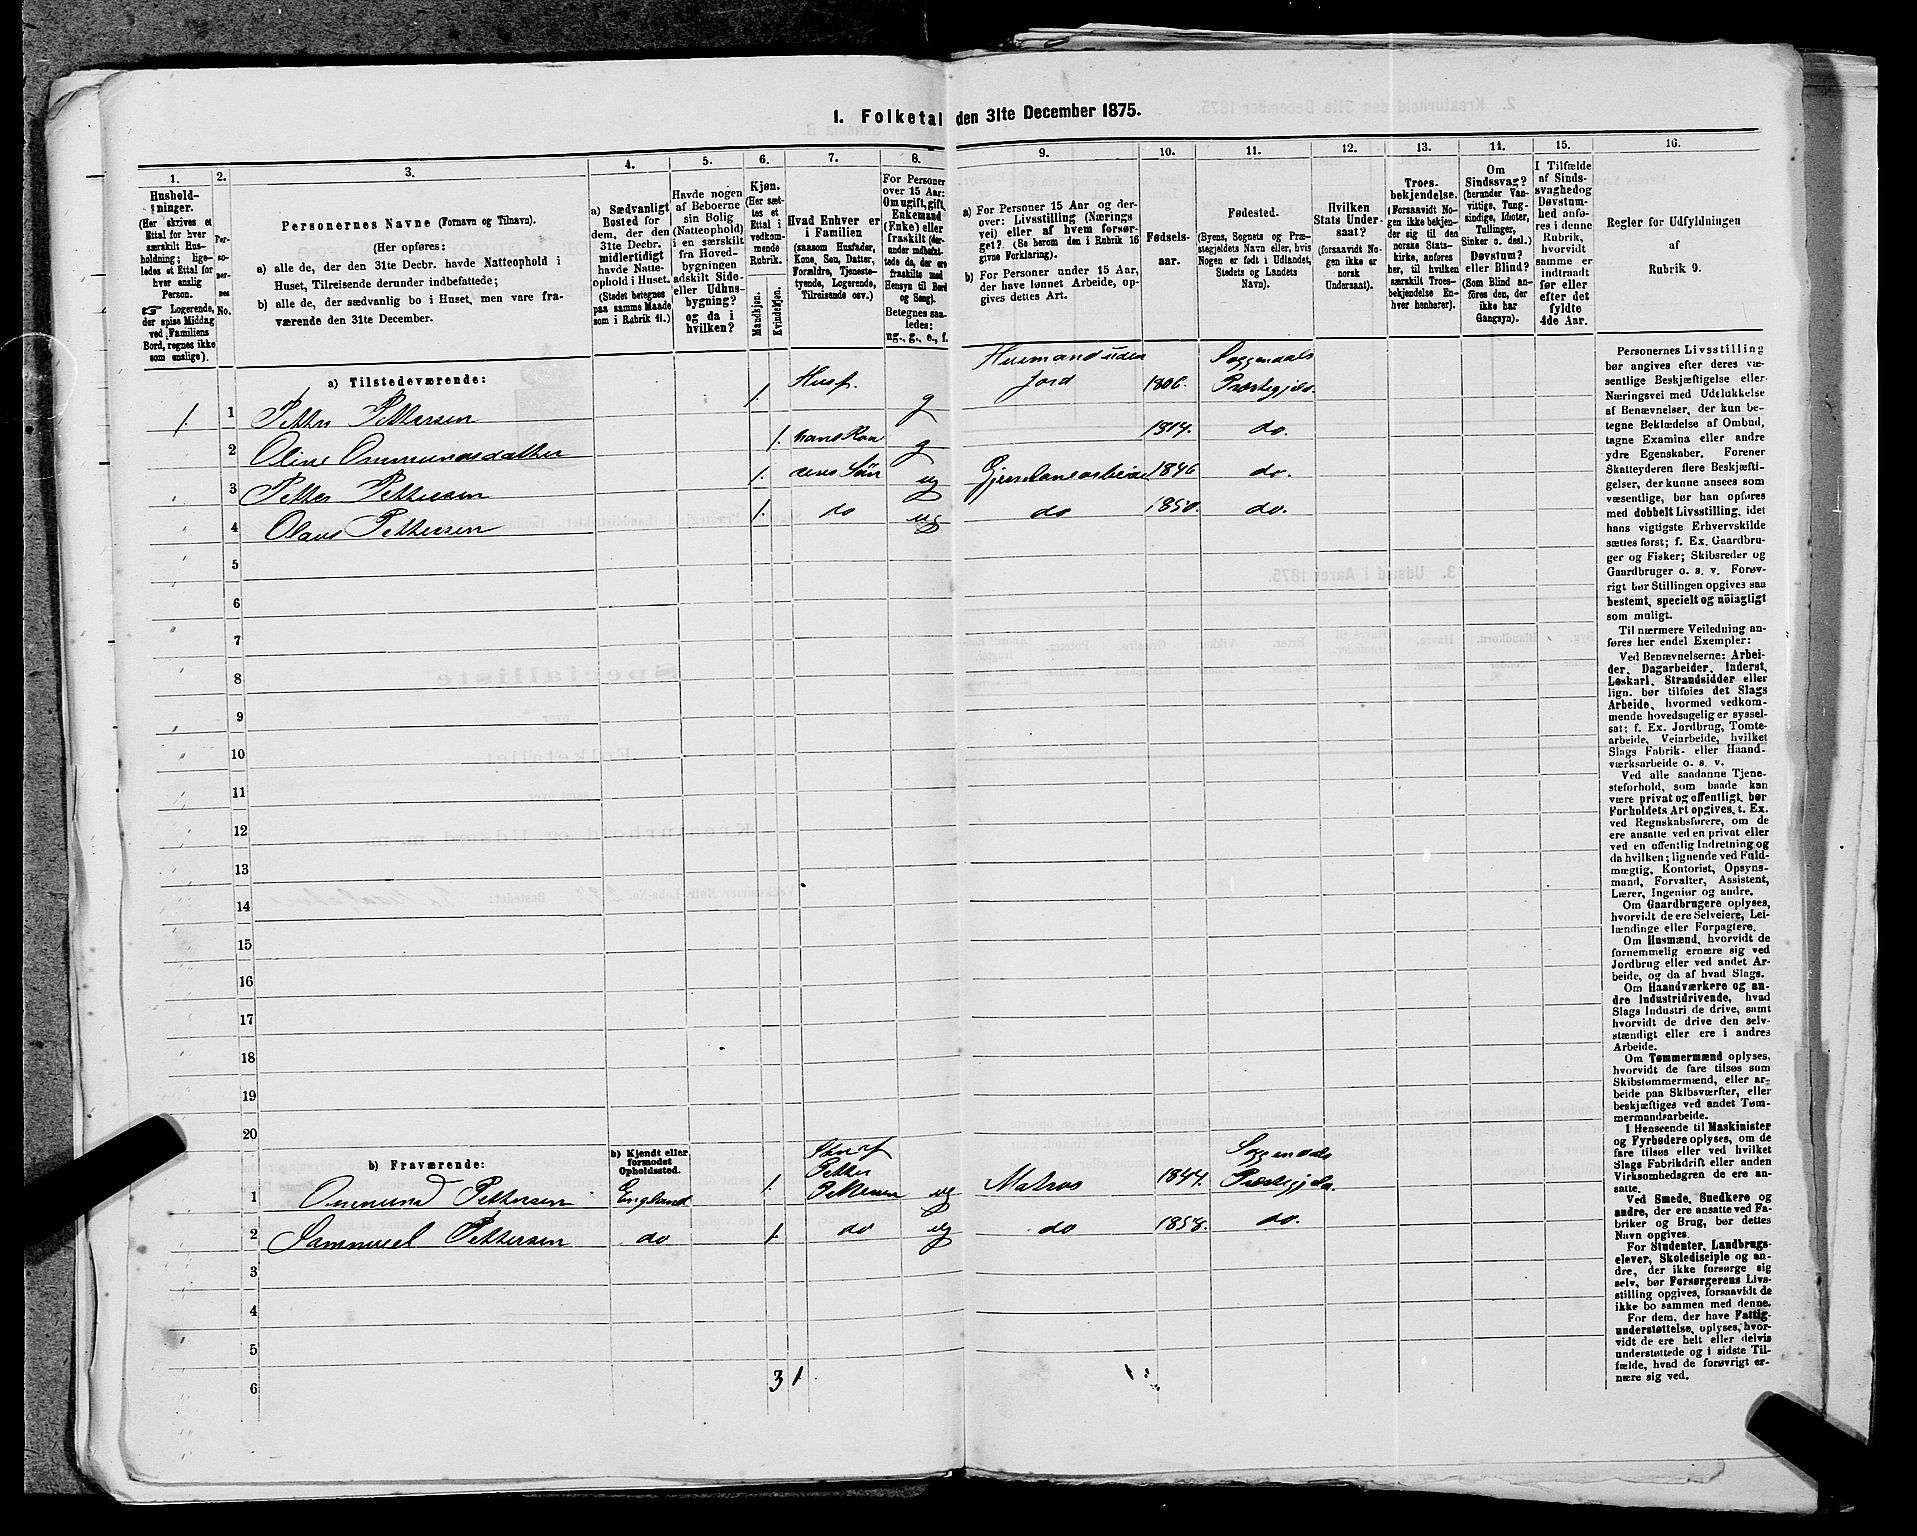 1. Folketal den 31te December 1875.
1.
2.
3.
4.
5.
6.
7.
8.
9.
10.
11.
12.
13.
14.
15.
16.
Hushold-
ninger.
(Her skrives et
Ettal for hver
særskilt Hus-
holdning; lige-
ledes et Ettal for
hver enslig
Person.
☞ Logerende,
der spise Middag
ved Familiens
Bord, regnes ikke
som enslige).
Per-
so-
ner-
nes
No.
Personernes Navne (Fornavn og Tilnavn).
(Her opføres:
a) alle de, der den 31te Decbr. havde Natteophold i
Huset, Tilreisende derunder indbefattede;
b) alle de, der sædvanlig bo i Huset, men vare fra-
værende den 31te December.
a) Sædvanligt
Bosted for
dem, der den
31te Decbr.
midlertidigt
havde Natte-
ophold i Huset.
(Stedet betegnes
paa samme Maade
som i Rubrik 11.)
Havde nogen
af Beboerne
sin Bolig
(Natteophold)
i en særskilt
fra Hoved-
bygningen
adskilt Side-
eller Udhus-
bygning?
og da i
hvilken?
Kjøn.
(Her sæt-
tes et
Ettal i
vedkom-
mende
Rubrik.
Mandkjøn.
Kvindekjøn.
Hvad Enhver er
i Familien
(saasom Husfader,
Kone, Søn, Datter,
Forældre, Tjeneste-
tyende, Logerende,
Tilreisende osv.)
For Personer
over 15 Aar:
Om ugift, gift,
Enkemand
(Enke) eller
fraskilt (der-
under indbefat-
tede de, der ere
fraskilte med
Hensyn til Bord
og Seng).
Betegnes saa-
ledes:
ug., g., e., f.
a) For Personer 15 Aar og der-
over: Livsstilling (Nærings
vei) eller af hvem forsør-
get?. (Se herom den i Rubrik 16
givne Forklaring).
b) For Personer under 15 Aar,
der have lønnet Arbeide, op-
gives dettes Art.
Fødsels-
aar.
Fødested.
(Byens, Sognets og Præ-
stegjeldets Navn eller, hvis
Nogen er født i Udlandet,
Stedets og Landets
Navn).
Hvilken
Stats Under-
saat?
(forsaavidt No-
gen ikke er
norsk
Undersaat).
Troes-
bekjendelse.
(Forsaavidt No-
gen ikke bekjen-
der sig til den
norske Stats-
kirke, anføres
her, til hvilken
særskilt Troes-
bekjendelse En-
hver henhører).
Om
Sindssvag?
(herunder Van-
vittige, Tung-
sindige, Idioter,
Tullinger,
Sinker o. desl.)
Døvstum?
eller Blind?
(Som Blind an-
føres den, der
ikke har
Gangsyn).
I Tilfælde
af Sinds-
svaghed og
Døvstum-
hed anfø-
res i denne
Rubrik,
hvorvidt
samme er
indtraadt
før eller
efter det
fyldte
4de Aar.
Regler for Udfyldningen
af
Rubrik 9.
a) Tilstedeværende:
1. 1 Petter Pettersen 1. Husf. g Husmand uden Jord 1806. Soggendals Præstegjeld.
2 Oline Ommundsdatter 1. hans Kon g 1814. do.
3 Petter Pettersen 1. deres Søn ug Gjernbanearbeider 1846 do.
4 Olaus Pettersen 1. do ug do 1850. do.
5
6
7
8
9
10
11
12
13
14
15
16
17
18
19
20
b) Fraværende:
b) Kjendt eller
formodet
Opholdssted.
1 Ommund Pettersen England 1. Petter Pettersen ug Matros 1844. Soggendals Præstegjeld.
2 Sammuel Pettersen do 1. do ug do 1858. do.
3
4
5
6
3 1
Personernes Livsstilling
bør angives efter deres væ-
sentlige Beskjæftigelse eller
Næringsvei med Udelukkelse
af Benævnelser, der kun be-
tegne Beklædelse af Ombud,
tagne Examina eller andre
ydre Egenskaber. Forener
Skatteyderen flere Beskjæfti-
gelser, der kunne ansees som
væsentlige, bør han opføres
med dobbelt Livsstilling, idet
hans vigtigste Erhvervskilde
sættes først; f. Ex. Gaardbru-
ger og Fisker; Skibsreder og
Gaardbruger o. s. v. Forøv-
rigt bør Stillingen opgives saa
bestemt, specielt og nöiagtigt
som muligt.
Til nærmere Veiledning an-
føres her endel Exempler:
Ved Benævnelserne: Arbei-
der, Dagarbeider, Inderst,
Løskarl, Strandsidder eller
lign. bør tilføies det Slags
Arbeide, hvormed vedkom-
mende hovedsagelig er syssel-
sat; f. Ex. Jordbrug, Tomte-
arbeide, Veiarbeide, hvilket
Slags Fabrik- eller Haand-
værksarbeide o. s. v.
Ved alle saadanne Tjene-
steforhold, som baade kan
være privat og offentligt, bør
Forholdets Art opgives, t. Ex.
ved Regnskabsførere, om de
ere ansatte ved en privat eller
ved en offentlig Indretning og
da hvilken; lignende ved Fuld-
mægtig, Kontorist, Opsyns-
mand, Forvalter, Assistent,
Lærer, Ingeniør og andre.
Om Gaardbrugere oplyses,
hvorvidt de ere Selveiere, Lei-
lændinge eller Forpagtere.
Om Husmænd, hvorvidt de
fornemmelig ernære sig ved
Jordbrug eller ved andet Ar-
beide, og da af hvad Slags.
Om Haandværkere og an-
dre Industridrivende, hvad
Slags Industri de drive, samt
hvorvidt de drive den selv-
stændigt eller ere i andres
Arbeide.
Om Tømmermænd oplyses,
hvorvidt de fare tilsøs som
Skibstømmermænd, eller ar-
beide paa Skibsværfter, eller
beskjæftiges ved andet Tøm-
mermandsarbeide.
I Henseende til Maskinister
og Fyrbødere oplyses, om de
fare tilsøs eller ved hvilket
Slags Fabrikdrift eller anden
Virksomhedsgren de ere an-
satte.
Ved Smede, Snedkere og
andre, der ere ansatte ved Fa-
briker og Brug, bør dettes
Navn opgives.
For Studenter, Landbrugs-
elever, Skoledisciple og an-
dre, der ikke forsørge sig
selv, bør Forsørgerens Livs-
stilling opgives, forsaavidt de
ikke bo sammen med denne.
For dem, der have Fattig-
understøttelse, oplyses, hvor-
vidt de ere helt eller delvis
understøttede og i sidste Til-
fælde, hvad de forøvrigt er-
nære sig ved.